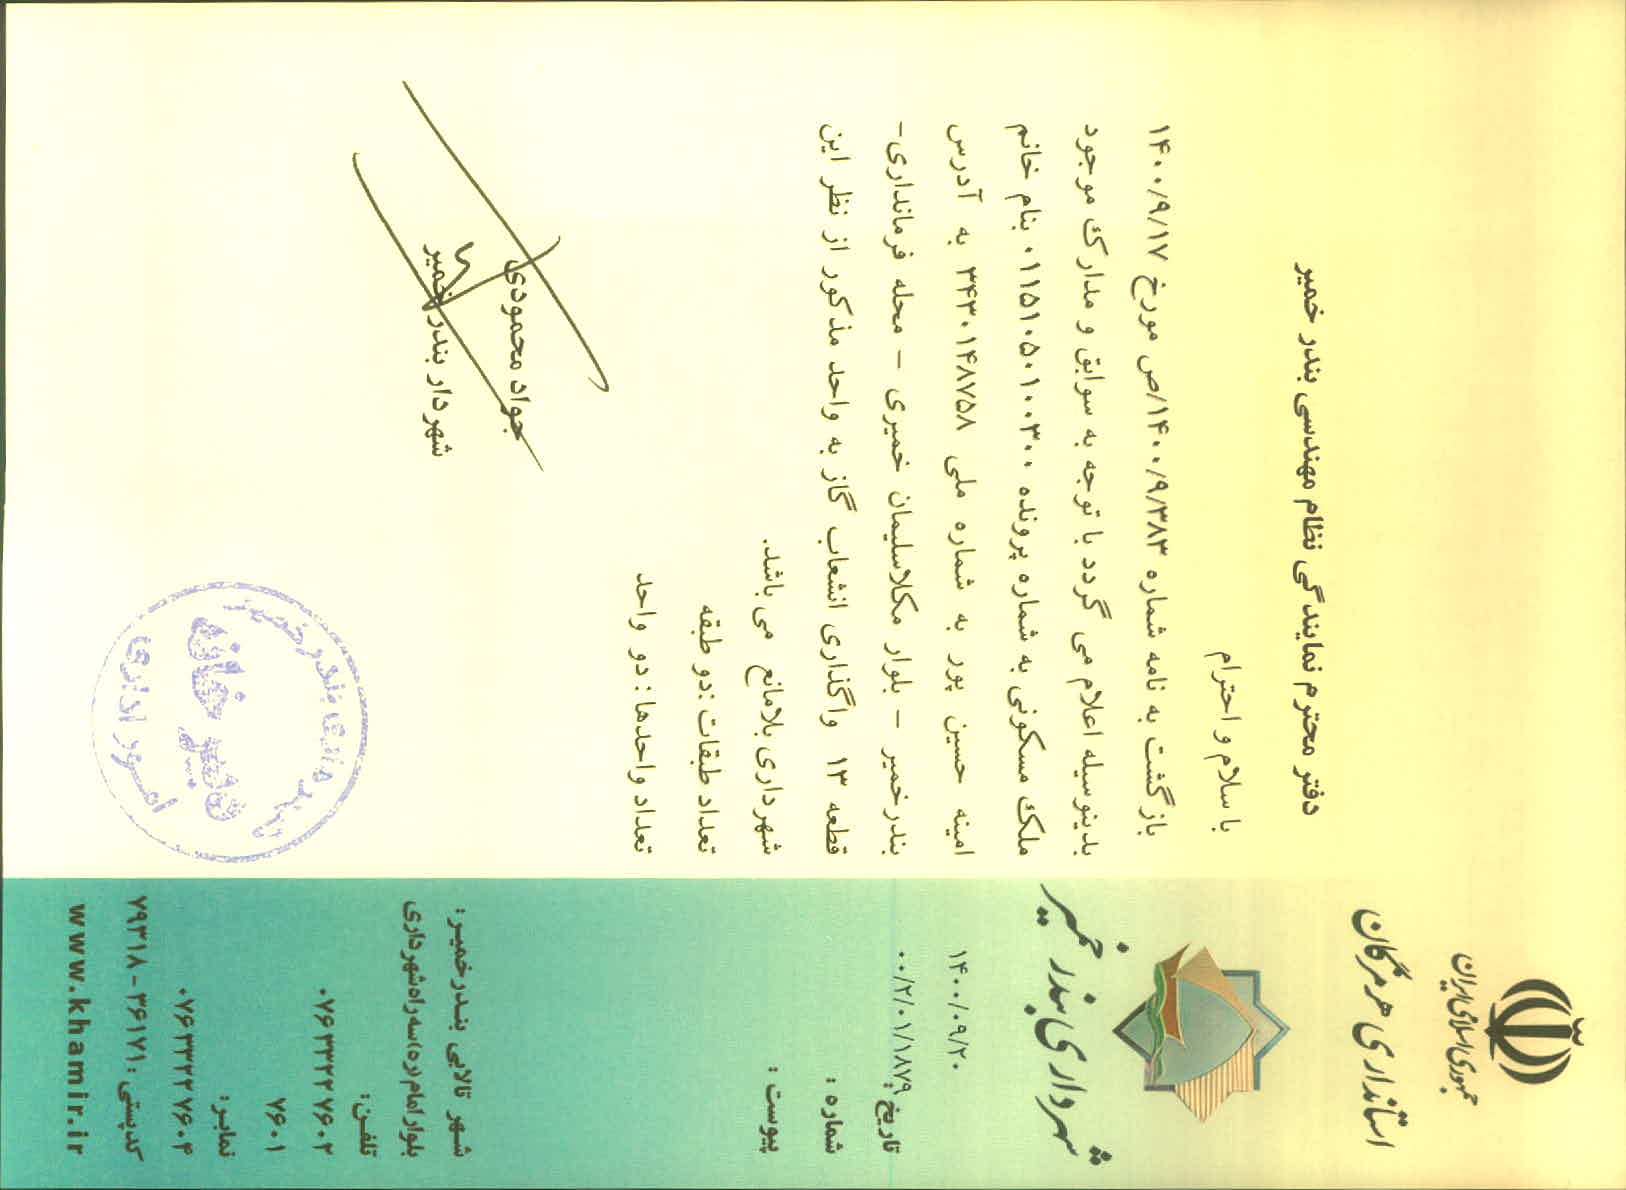 جمهوری اسلامی ایران
استانداری هرمزگان
شهرداری بندر خمیر
۱۴۰۰/۰۹/۲۰
۰۰/۲/۰۱/۱۸۷۹
تاریخ :
شماره :
پیوست :
شهر تالابی بندرخمیر:
بلوار امام(ره)سه راه شهرداری
تلفن:
۰۷۶۳۳۲۲۷۶۰۲
۷۶۰۱
نمابر:
۰۷۶۳۳۲۲۷۶۰۴
کدپستی : ۳۶۱۷۱ - ۷۹۳۱۸
www.khamir.ir
دفتر محترم نمایندگی نظام مهندسی بندر خمیر
با سلام و احترام
بازگشت به نامه شماره ۱۴۰۰/۹/۳۸۳/ص مورخ ۱۴۰۰/۹/۱۷
بدینوسیله اعلام می گردد با توجه به سوابق و مدارک موجود
ملک مسکونی به شماره پرونده ۰۱۱۵۱۰۵۰۱۰۰۳۰۰ بنام خانم
امینه حسین پور به شماره ملی ۳۴۳۰۱۴۸۷۵۸ به آدرس
بندرخمیر – بلوار مکلاسلیمان خمیری – محله فرمانداری-
قطعه ۱۳ واگذاری انشعاب گاز به واحد مذکور از نظر این
شهرداری بلامانع می باشد.
تعداد طبقات :دو طبقه
تعداد واحدها : دو واحد
جواد محمودی
شهردار بندر خمیر
شهرداری بندر خمیر
دبیر خانه
امور اداری